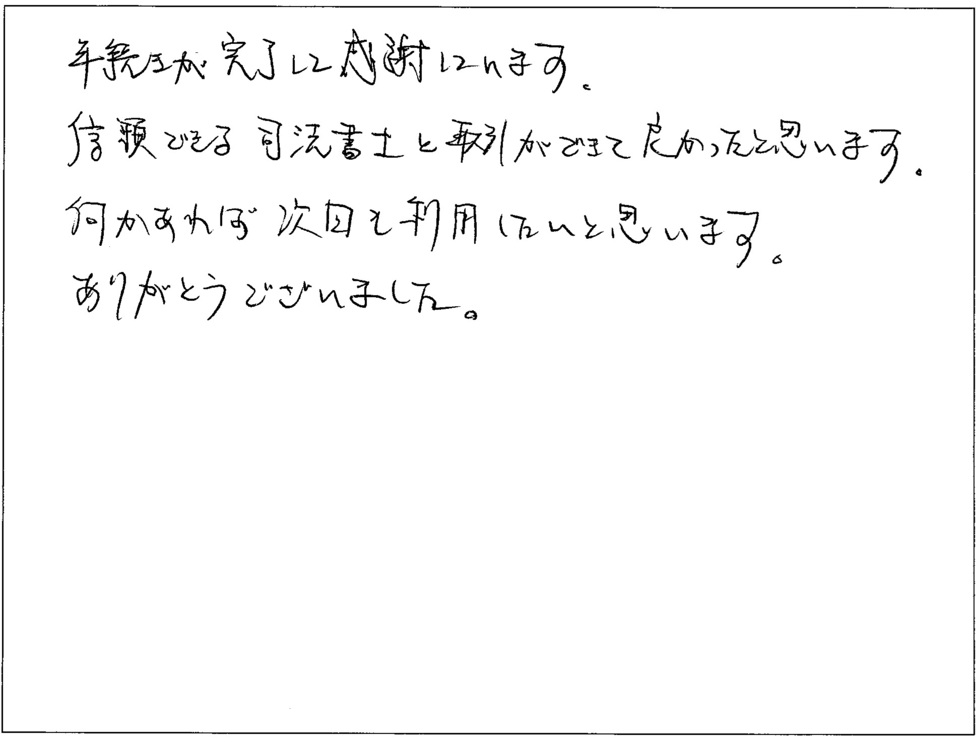 手続きが完了して感謝しています。
信頼できる司法書士と取引ができて良かったと思います。
何かあれば次回も利用したいと思います。
ありがとうございました。